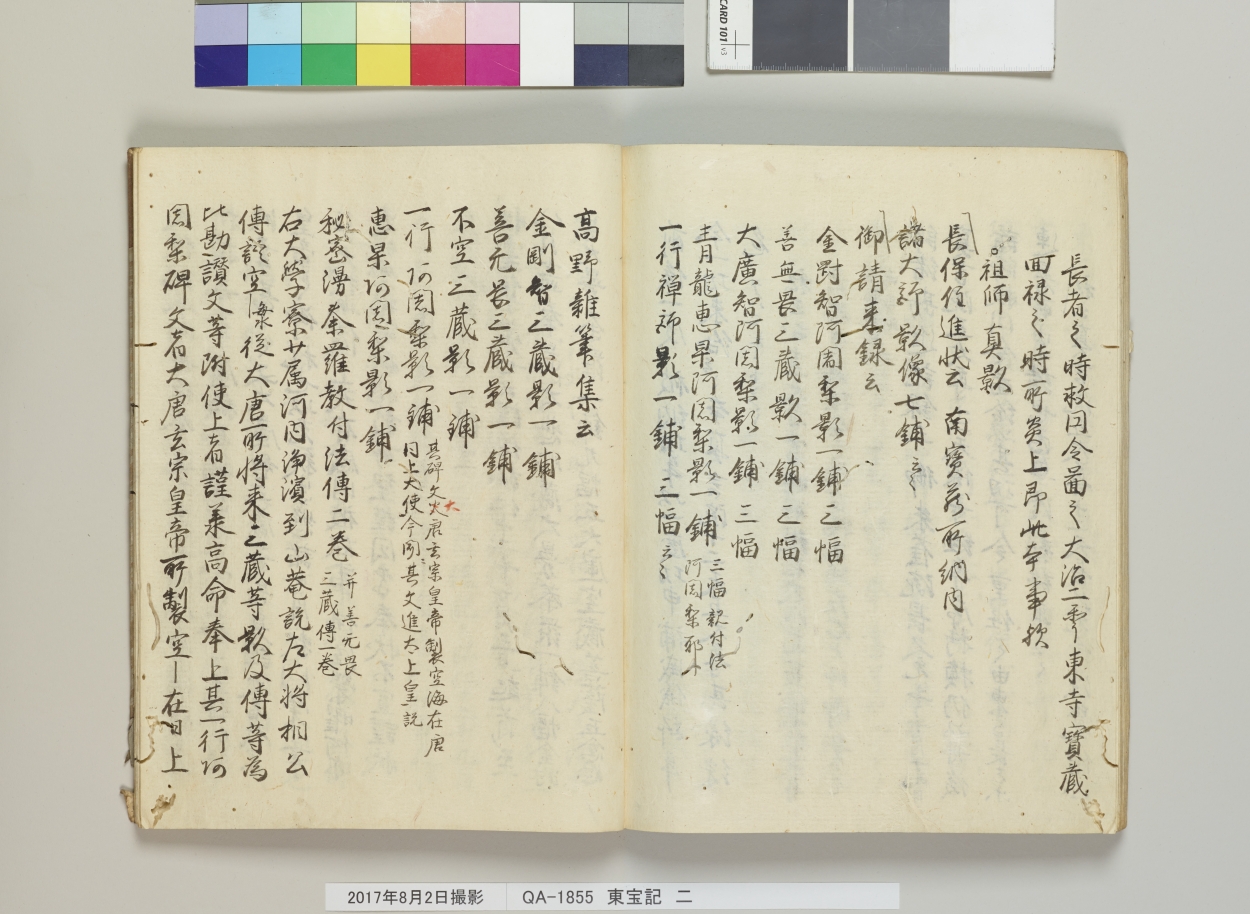 長者之時救円令啚之大治二年東寺寶蔵
回禄之時所炎上即此本事欤
祖師真影
長保任進状云 南寳蔵所納内
諸大師影像七鋪云々
御請来録云
金剛智阿闍梨影一鋪三幅
善無畏三蔵影一鋪三幅
大廣智阿闍梨影一鋪三幅
青龍恵果阿闍梨影一鋪 三幅
阿闍梨耶
一行禅師影一鋪三幅云々
高野雜筆集云
金剛智三蔵影一鋪
善无畏三蔵影一鋪
不空三蔵影一鋪
一行阿闍梨影一鋪 其碑文大唐玄宗皇帝製空海在唐
日上大使今聞其文進太上皇訖
大
恵果阿闍梨影一鋪
秘密漫荼羅教付法傳二巻 并善无畏
三蔵傳一巻
右大學寮少属河内浄濱到山菴説左大将相公
傳語空海従大唐所将来三蔵等影及傳等為
比勘讃文等附使上者謹奉高命奉上其一行阿
闍梨碑文者大唐玄宗皇帝所製空—在日上
CARD 101 v3
2017年8月2日撮影 QA-1855 東宝記 二